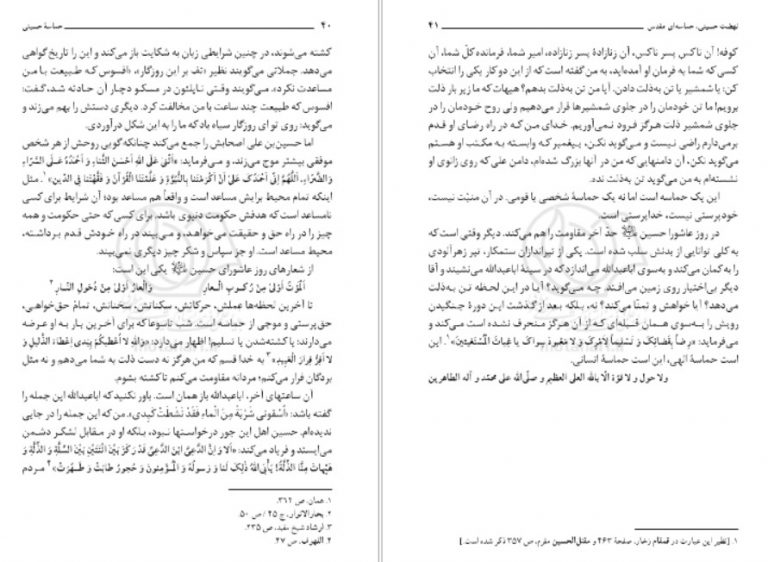 ۴۰ حماسهٔ حسینی
کشته می‌شوند، در چنین شرایطی زبان به شکایت باز می‌کند و این را تاریخ گواهی
می‌دهد. جملاتی می‌گویند نظیر «تف بر این روزگار»، «افسوس که طبیعت با من
مساعدت نکرد». می‌گویند وقتی ناپلئون در مسکو دچار آن حادثه شد، گفت:
افسوس که طبیعت چند ساعت با من مخالفت کرد. دیگری دستش را بهم می‌زند و
می‌گوید: روی تو ای روزگار سیاه باد که ما را به این شکل درآوردی.
اما حسین‌بن علی اصحابش را جمع می‌کند چنانکه گویی روحش از هر شخص
موفقی بیشتر موج می‌زند، و می‌فرماید: «اُثْنی عَلَی اللهِ اَحْسَنَ الثَّناءِ وَ اَحْمَدُهُ عَلَی السَّرّاءِ
وَ الضَّرّاءِ. اَللّهُمَّ اِنّی اَحْمَدُکَ عَلی اَنْ اَکْرَمْتَنا بِالنُّبُوَّةِ وَ عَلَّمْتَنَا الْقُرْآنَ وَ فَقَّهْتَنا فِی الدّینِ»۱. مثل
اینکه تمام محیط برایش مساعد است و واقعاً هم مساعد بود؛ آن شرایط برای کسی
نامساعد است که هدفش حکومت دنیوی باشد. برای کسی که حتی حکومت و همه
چیز را در راه حق و حقیقت می‌خواهد، و می‌بیند در راه خودش قدم برداشته،
محیط مساعد است. او جز سپاس و شکر چیز دیگری نمی‌بیند.
از شعارهای روز عاشورای حسین یکی این است:
اَلْمَوْتُ اَوْلی مِنْ رُکوبِ الْعارِ وَ الْعارُ اَوْلی مِنْ دُخولِ النّارِ۲
تا آخرین لحظه‌ها عملش، حرکاتش، سکناتش، سخنانش، تمام حق‌خواهی،
حق‌پرستی و موجی از حماسه است. شب تاسوعا که برای آخرین بار به او عرضه
می‌دارند: یا کشته‌شدن یا تسلیم! اظهار می‌دارد: «وَاللهِ لا اُعْطیکُمْ بِیَدی اِعْطاءَ الذَّلیلِ وَ
لا اَفِرُّ فِرارَ الْعَبیدِ»۳ به خدا قسم که من هرگز نه دست ذلت به شما می‌دهم و نه مثل
بردگان فرار می‌کنم؛ مردانه مقاومت می‌کنم تا کشته بشوم.
آن ساعتهای آخر، اباعبدالله باز همان است. باور نکنید که اباعبدالله این جمله را
گفته باشد: «اُسْقونی شَرْبَةً مِنَ الْماءِ فَقَدْ نَشَطَتْ کَبِدی». من که این جمله را در جایی
ندیده‌ام. حسین اهل این جور درخواستها نبود، بلکه او در مقابل لشکر دشمن
می‌ایستد و فریاد می‌کند: «اَلا وَ اِنَّ الدَّعِیَّ ابْنَ الدَّعِیِّ قَدْ رَکَزَ بَیْنَ اثْنَتَیْنِ بَیْنَ السِّلَّةِ وَ الذِّلَّةِ وَ
هَیْهاتَ مِنَّا الذِّلَّةُ! یَأْبَی اللهُ ذلِکَ لَنا وَ رَسولُهُ وَ الْمُؤْمِنونَ وَ حُجورٌ طابَتْ وَ طَهُرَتْ»۴ مردم
۱. همان، ص ۳۶۲.
۲. بحارالانوار، ج ۴۵ / ص ۵۰.
۳. ارشاد شیخ مفید، ص ۲۳۵.
۴. اللهوف، ص ۴۷.
نهضت حسینی، حماسه‌ای مقدس ۴۱
کوفه! آن ناکس پسر ناکس، آن زنازادهٔ پسر زنازاده، امیر شما، فرمانده کلّ شما، آن
کسی که شما به فرمان او آمده‌اید، به من گفته است که از این دو کار یکی را انتخاب
کن: یا شمشیر یا تن به‌ذلت دادن. آیا من تن به‌ذلت بدهم؟ هیهات که ما زیر بار ذلت
برویم! ما تن خودمان را در جلوی شمشیرها قرار می‌دهیم ولی روح خودمان را در
جلوی شمشیر ذلت هرگز فرود نمی‌آوریم. خدای من که در راه رضای او قدم
برمی‌دارم راضی نیست و می‌گوید نکن، پیغمبر که وابسته به مکتب او هستم
می‌گوید نکن، آن دامنهایی که من در آنها بزرگ شده‌ام، دامن علی که روی زانوی او
نشسته‌ام به من می‌گوید تن به‌ذلت نده.
این یک حماسه است اما نه یک حماسهٔ شخصی یا قومی. در آن منیّت نیست،
خودپرستی نیست، خداپرستی است.
در روز عاشورا حسین حدّ آخر مقاومت را هم می‌کند. دیگر وقتی است که
به کلی توانایی از بدنش سلب شده است. یکی از تیراندازان ستمکار، تیر زهرآلودی
را به‌کمان می‌کند و به‌سوی اباعبدالله می‌اندازد که در سینهٔ اباعبدالله می‌نشیند و آقا
دیگر بی‌اختیار روی زمین می‌افتد. چه می‌گوید؟ آیا در این لحظه تن به‌ذلت
می‌دهد؟ آیا خواهش و تمنّا می‌کند؟ نه، بلکه بعد از گذشت این دورهٔ جنگیدن
رویش را به‌سوی همان قبله‌ای که از آن هرگز منحرف نشده است می‌کند و
می‌فرماید: «رِضاً بِقَضائِکَ وَ تَسْلیماً لِاَمْرِکَ وَ لا مَعْبودَ سِواکَ یا غِیاثَ الْمُسْتَغیثینَ»۱. این
است حماسهٔ الهی، این است حماسهٔ انسانی.
ولا حول و لا قوّة الّا بالله العلی العظیم و صلّی‌الله علی محمّد و آله الطاهرین
۱. [نظیر این عبارت در قمقام زخار، صفحهٔ ۴۶۳ و مقتل‌الحسین مقرم، ص ۳۵۷ ذکر شده است.]